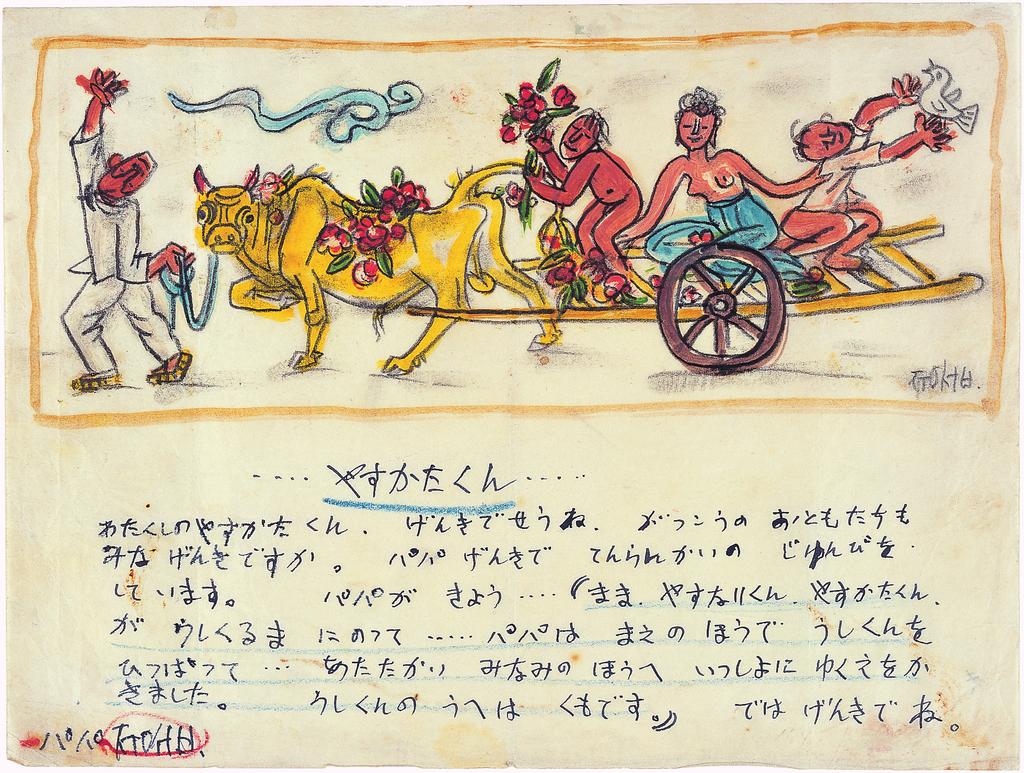 ‥‥ やすかたくん ‥‥
わたくしのやすかたくん、げんきでせうね、がつこうの おともたちも
みなげんきですか。パパ げんきで てんらんかいの じゆんびを
しています。パパが きよう‥‥(まま、やすなりくん、やすかたくん、
が うしくるま にのつて‥‥パパは まえの ほうで うしくんを
ひつぱつて… あたたかい みなみの ほうへ いつしよに ゆくえをか
きました。うしくんの うへは くもです。) では げんきで ね。
パパ